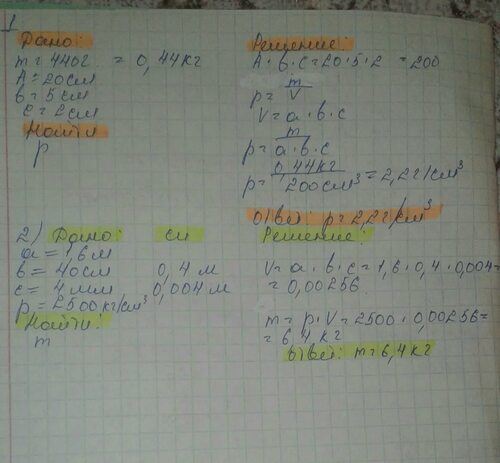 1
Дано:
m = 440г = 0,44кг
A = 20см
в = 5см
с = 2см
Найти
р
Решение:
A · в · с = 20 · 5 · 2 = 200
р = m/V
V = а · в · с
р = m/а · в · с
р = 0,44кг/200см³ = 2,2г/см³
Ответ: р = 2,2г/см³
2) Дано: си
а = 1,6м
в = 40см 0,4 м
с = 4мм 0,004 м
р = 2500кг/см³
Найти:
m
Решение:
V = а · в · с = 1,6 · 0,4 · 0,004 =
= 0,00256
m = р · V = 2500 · 0,00256 =
= 6,4 кг
Ответ: m = 6,4кг